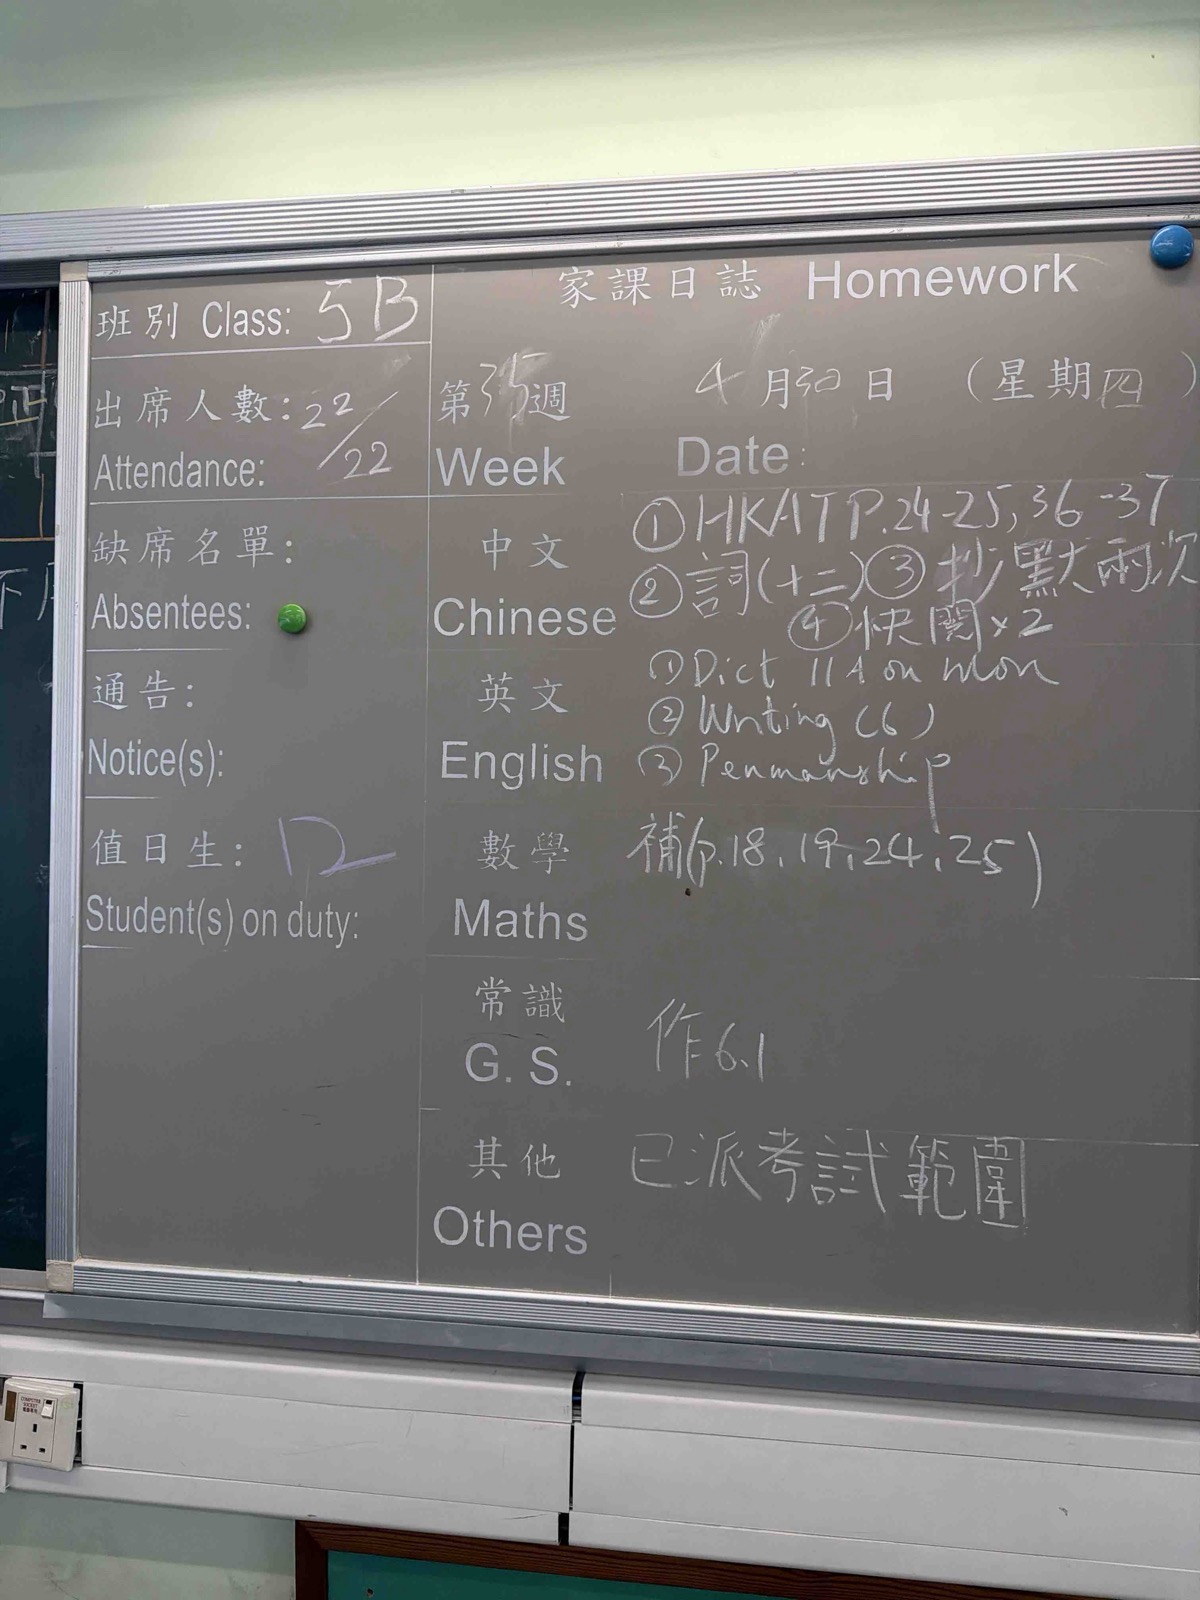 家課日誌 Homework
班別 Class: 5B
出席人數: 22/22
Attendance:
缺席名單:
Absentees:
通告:
Notice(s):
值日生: 12
Student(s) on duty:
第35週 4月30日 （星期四）
Week Date:
中文
Chinese
①HKAT P.24-25, 36-37
②詞(十二)③抄默兩次
④快閱×2
英文
English
①Dict 11A on mon
②Writing (6)
③Penmanship
數學
Maths
補(p.18, 19, 24, 25)
常識
G. S.
作6.1
其他
Others
已派考試範圍
COMPUTER
SOCKET